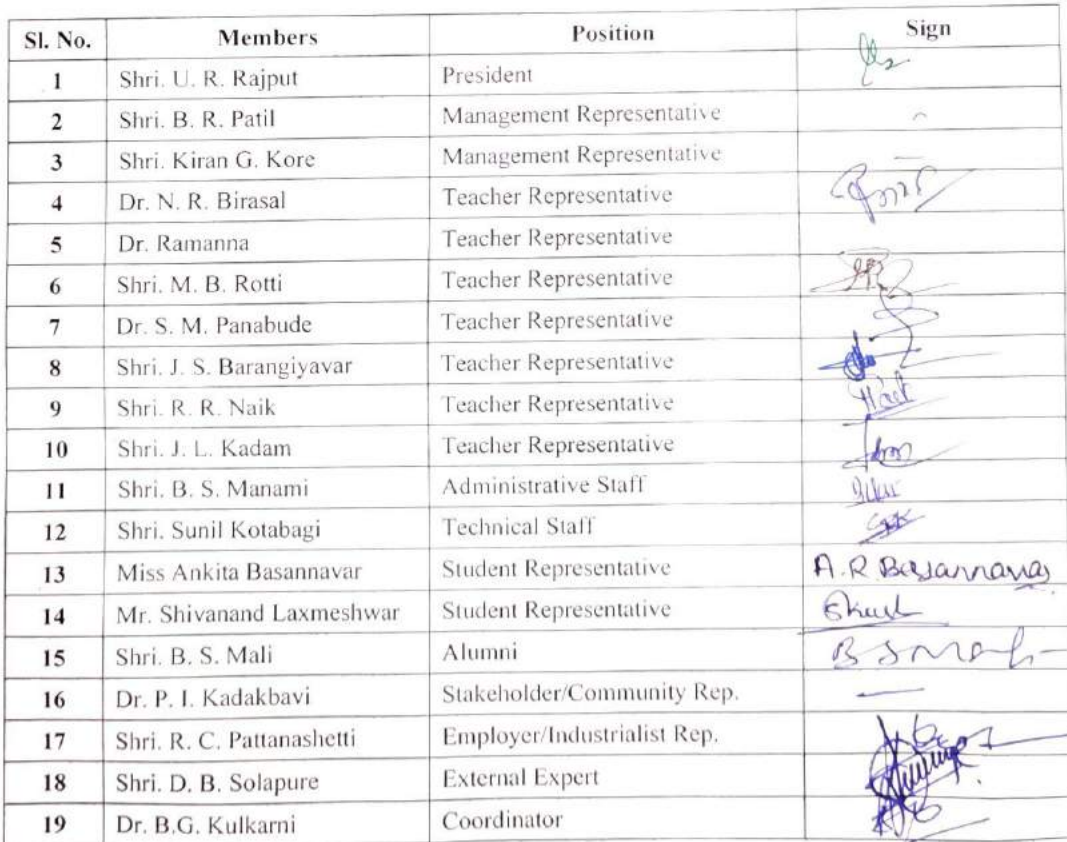 Sl. No. Members Position Sign
1 Shri. U. R. Rajput President
2 Shri. B. R. Patil Management Representative
3 Shri. Kiran G. Kore Management Representative
4 Dr. N. R. Birasal Teacher Representative
5 Dr. Ramanna Teacher Representative
6 Shri. M. B. Rotti Teacher Representative
7 Dr. S. M. Panabude Teacher Representative
8 Shri. J. S. Barangiyavar Teacher Representative
9 Shri. R. R. Naik Teacher Representative
10 Shri. J. L. Kadam Teacher Representative
11 Shri. B. S. Manami Administrative Staff
12 Shri. Sunil Kotabagi Technical Staff
13 Miss Ankita Basannavar Student Representative A.R. Basannavar
14 Mr. Shivanand Laxmeshwar Student Representative
15 Shri. B. S. Mali Alumni
16 Dr. P. I. Kadakbavi Stakeholder/Community Rep.
17 Shri. R. C. Pattanashetti Employer/Industrialist Rep.
18 Shri. D. B. Solapure External Expert
19 Dr. B.G. Kulkarni Coordinator